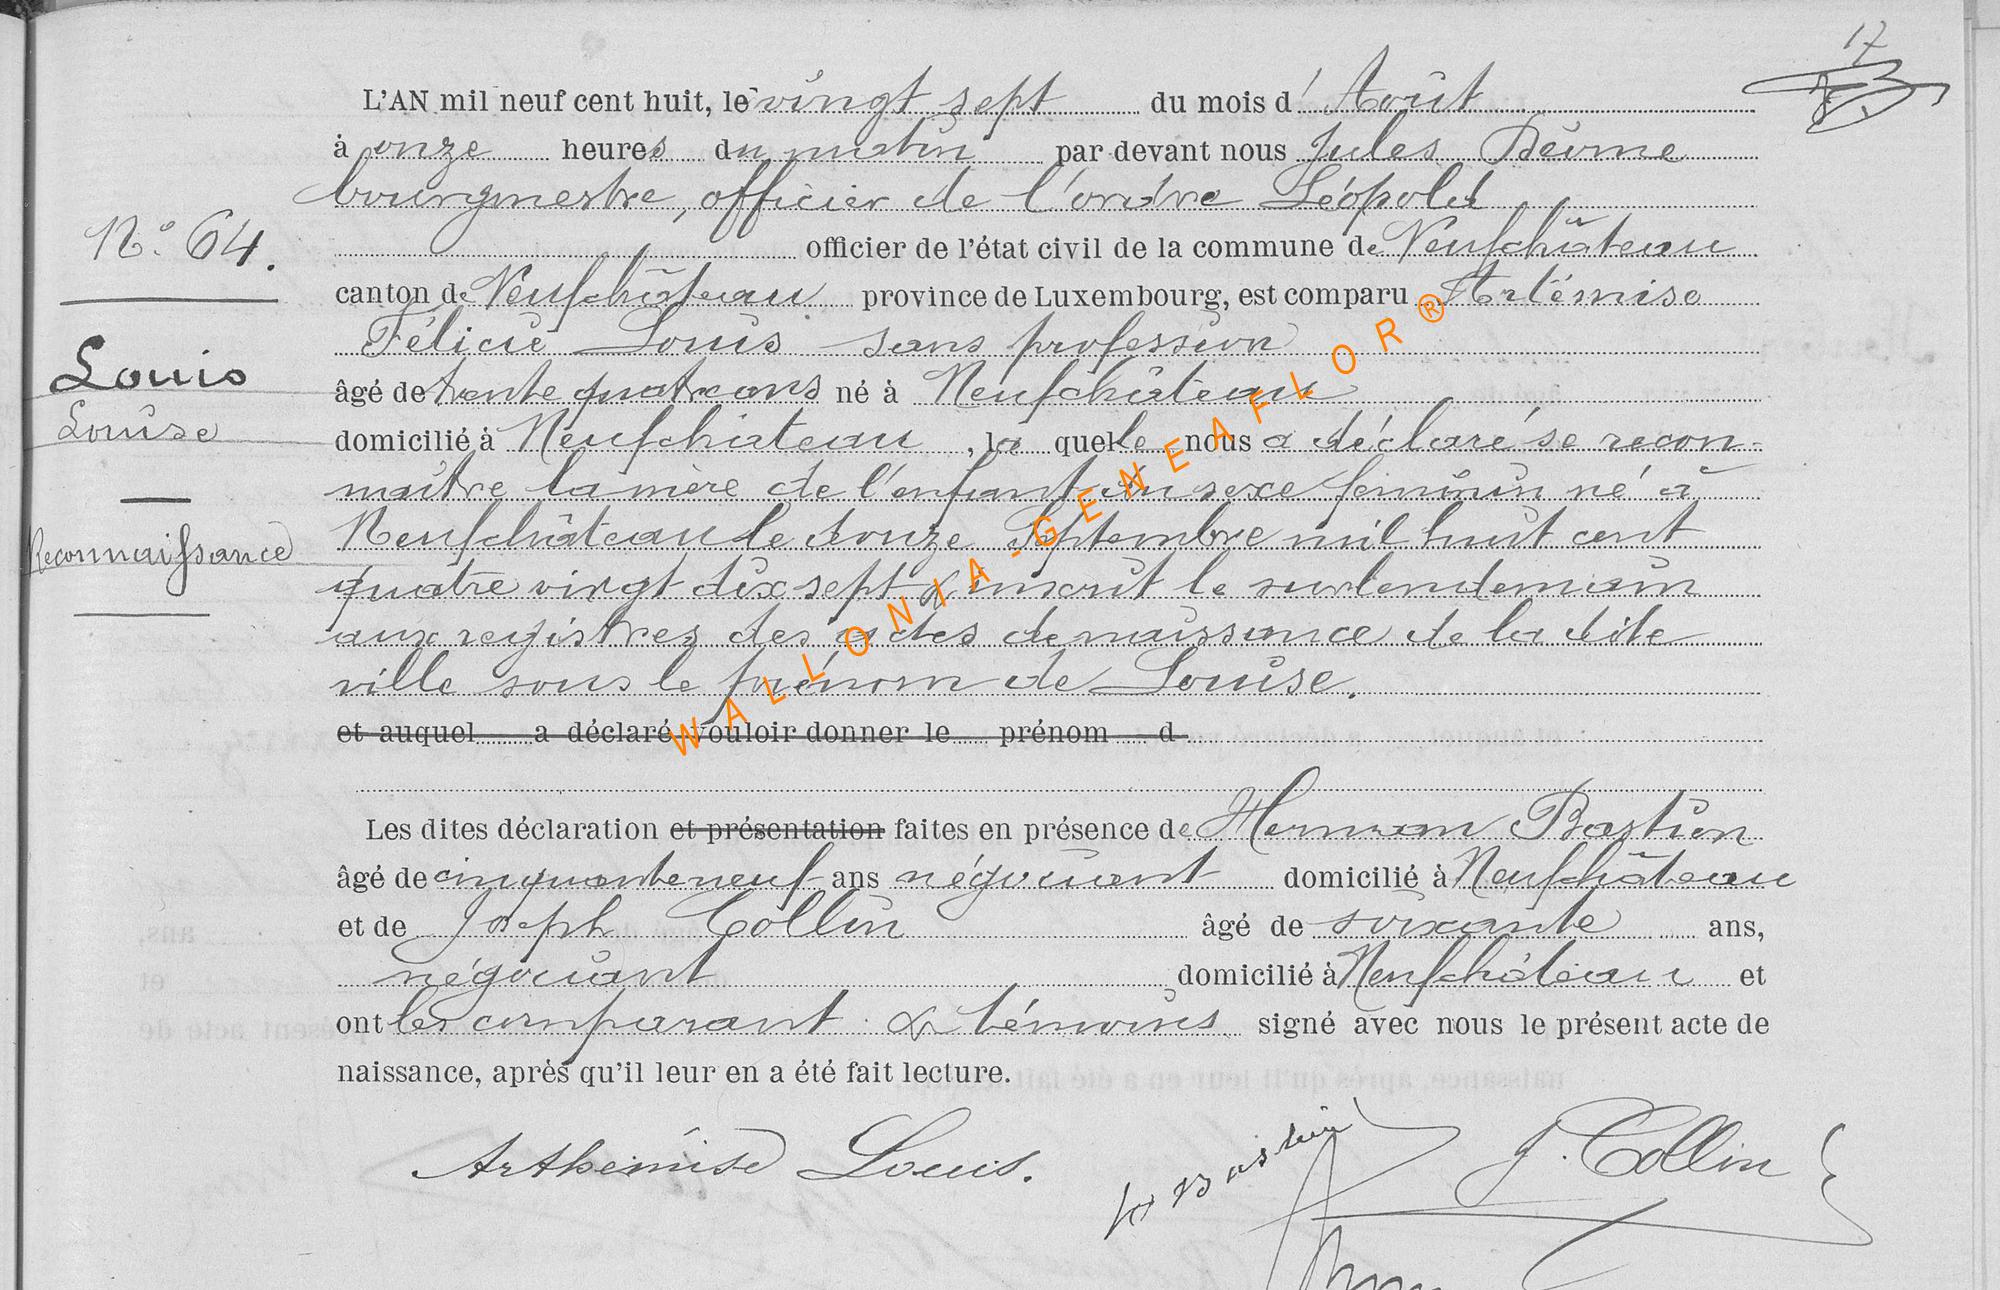 17
L'AN mil neuf cent huit, le vingt sept du mois d' Août
à onze heures du matin par devant nous Jules
bourgmestre, officier de l'ordre Léopold
officier de l'état civil de la commune de Neufchâteau
canton de Neufchâteau province de Luxembourg, est comparu Artémise
Félicie Louis sans profession
âgé de trente quatre ans né à Neufchâteau
domicilié à Neufchâteau, la quelle nous a déclaré se recon-
naître la mère de l'enfant du sexe féminin né à
Neufchâteau le douze Septembre mil huit cent
quatre vingt dix sept & inscrit le surlendemain
aux registres des actes de naissance de la dite
ville sous le prénom de Louise.
et auquel a déclaré vouloir donner le prénom d
Les dites déclaration et présentation faites en présence de Herman Bastien
âgé de cinquante neuf ans négociant domicilié à Neufchâteau
et de Joseph Collin âgé de soixante ans,
négociant domicilié à Neufchâteau et
ont les comparant & témoins signé avec nous le présent acte de
naissance, après qu'il leur en a été fait lecture.
N° 64.
Louis
Louise
Reconnaissance
Arthémise Louis.
H Bastien
J. Collin
WALLONIA-GENEAFLOR®